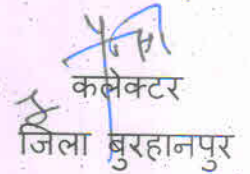 कलेक्टर
जिला बुरहानपुर